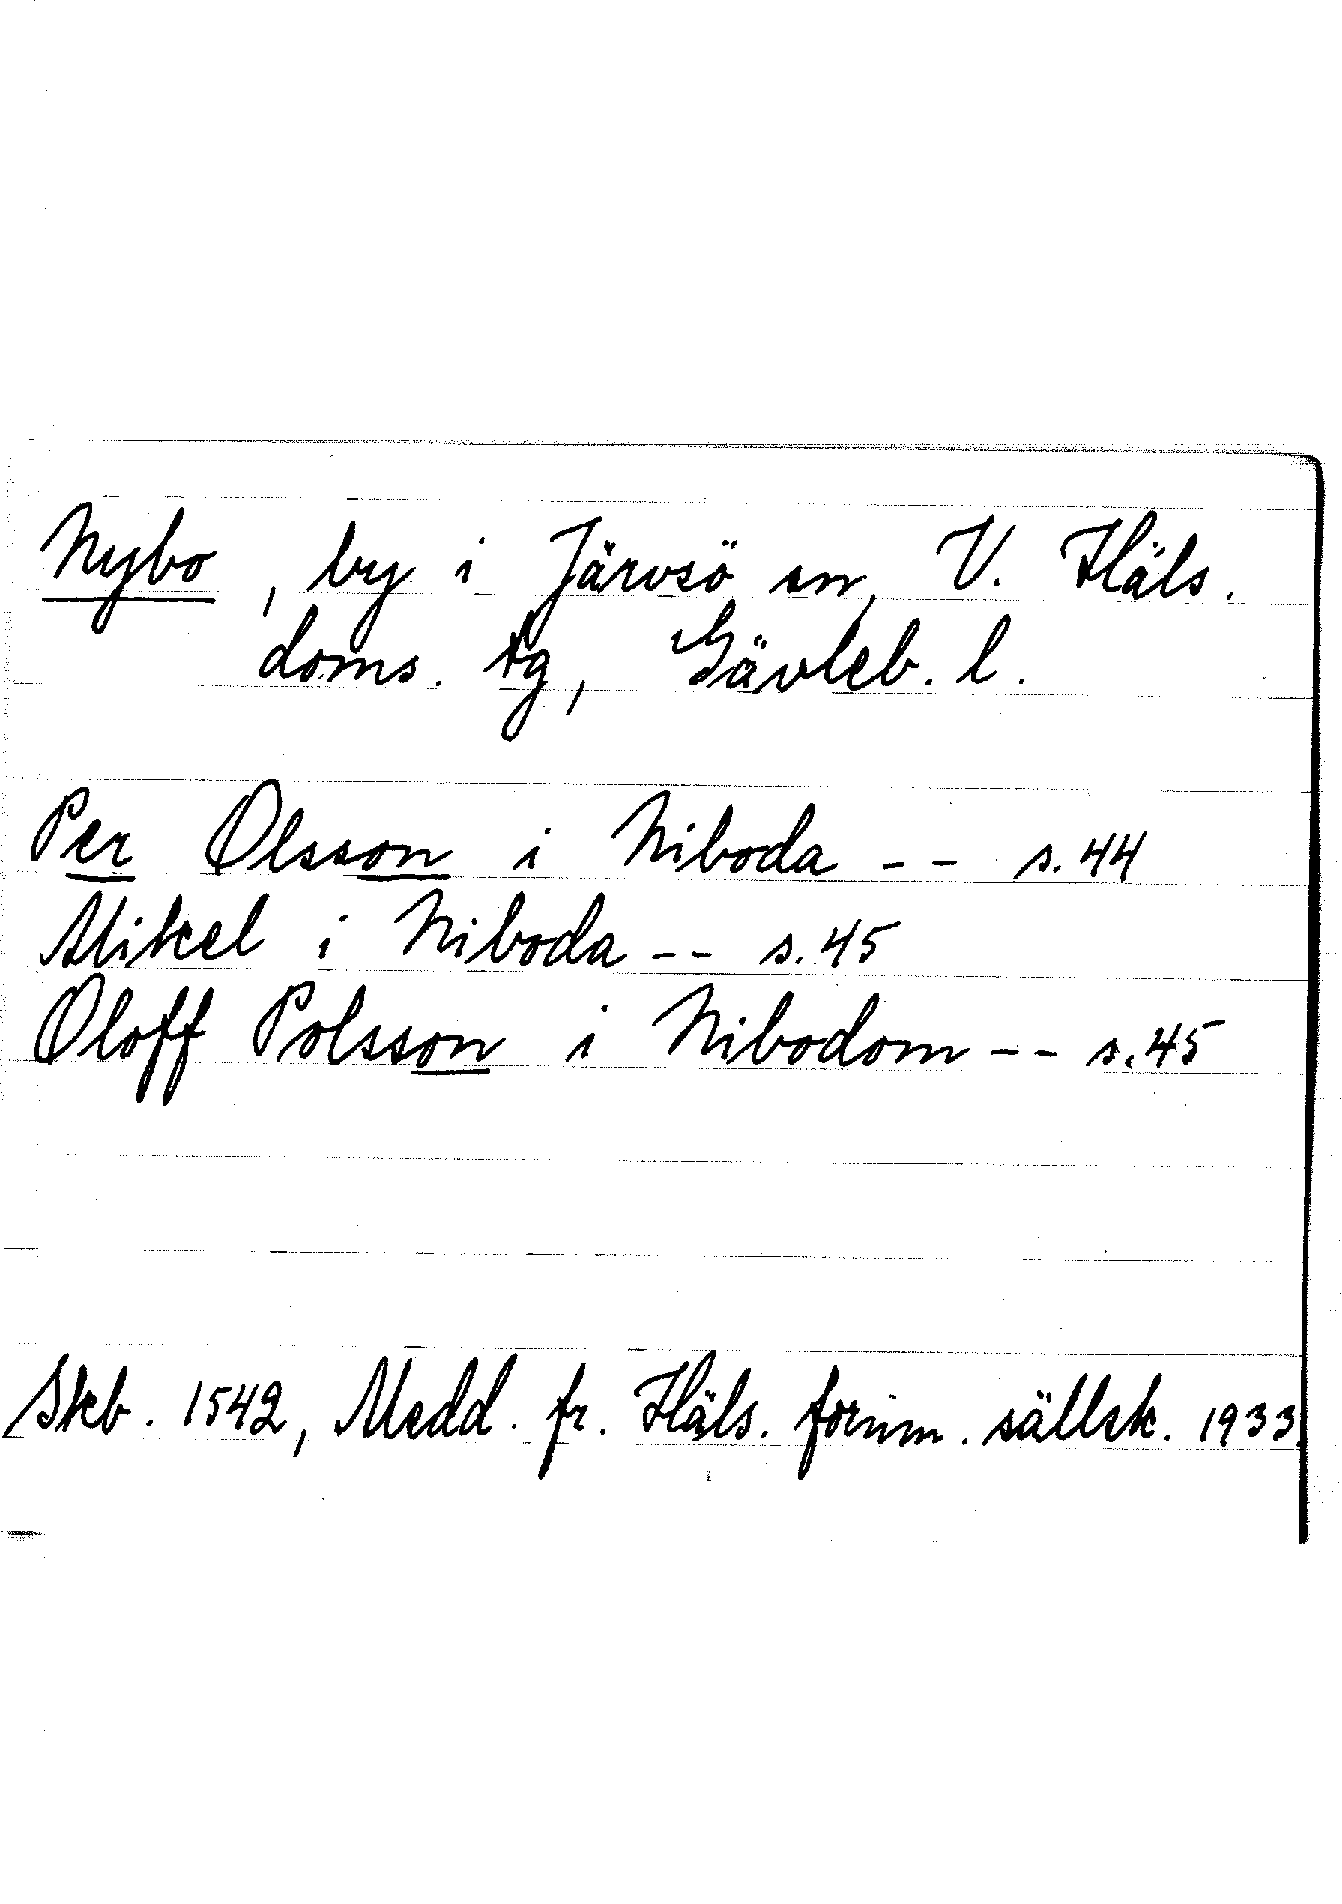 Nybo, by i Järvsö sn, V. Häls.
doms. tg, Gävleb. l.
Per Olsson i Niboda -- s. 44
Mikel i Niboda -- s. 45
Oloff Polsson i Nibodom -- s. 45
Skb. 1542, Medd. fr. Häls. fornm. sällsk. 1933.